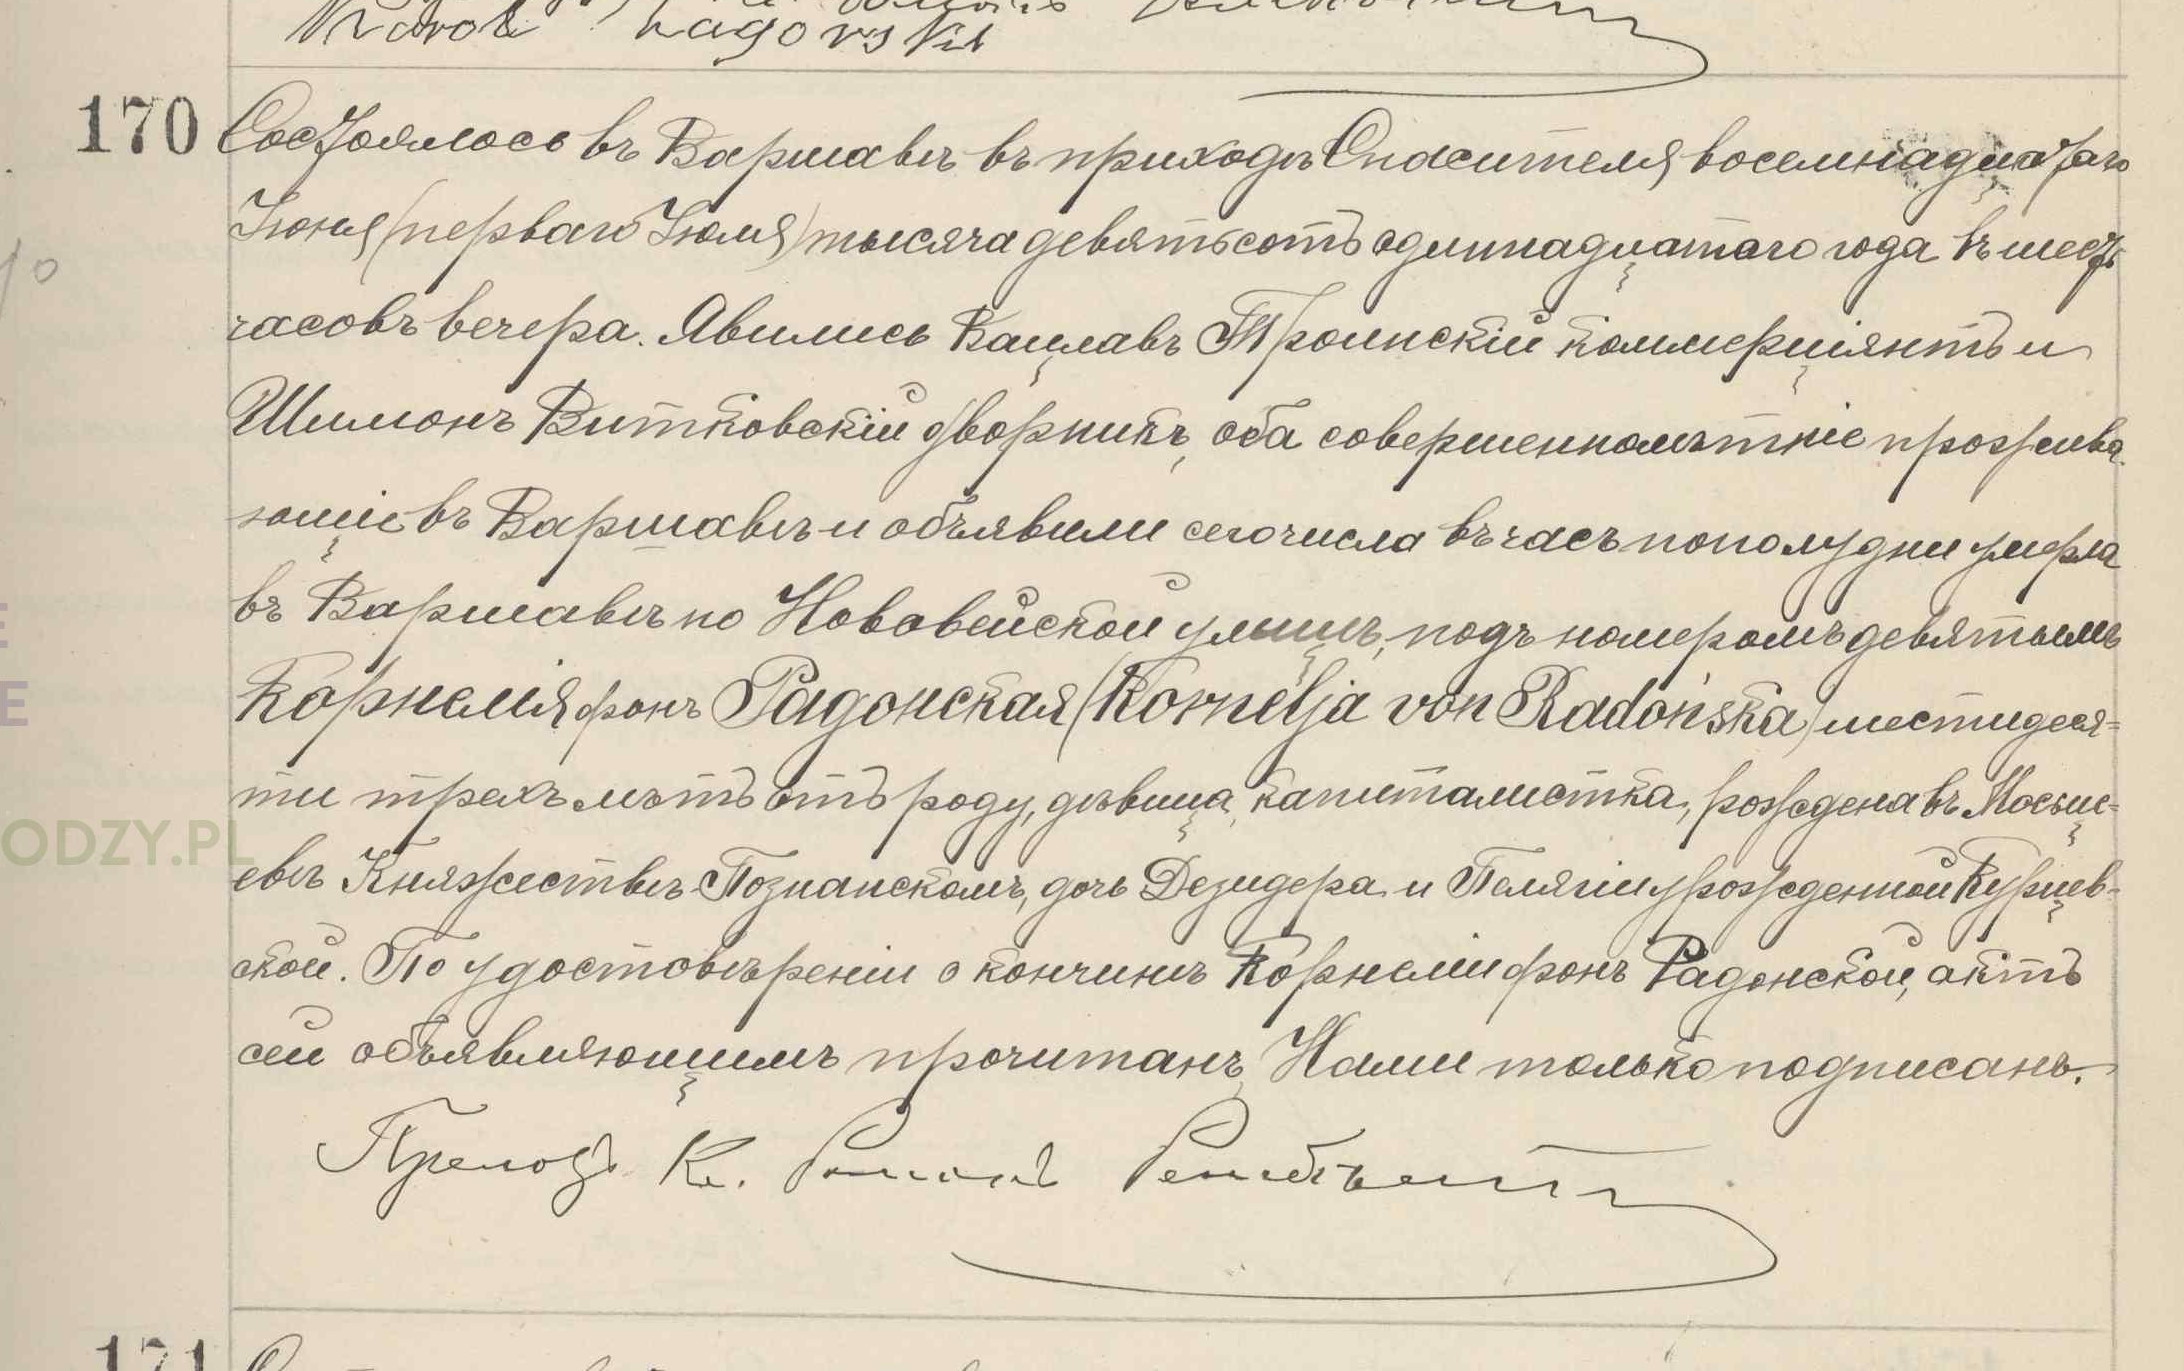 Karol Zagorski
170
Состоялось въ Варшавѣ въ приходѣ Спасителя восемнадцатаго
Іюня (перваго Іюля) тысяча девятьсотъ одиннадцатаго года въ шесть
часовъ вечера. Явились Вацлавъ Троинскій коммерціянтъ и
Шимонъ Витковскій дворникъ, оба совершеннолѣтніе прожива-
ющіе въ Варшавѣ и объявили сего числа въ часъ пополудни умерла
въ Варшавѣ по Нововейской улицѣ, подъ номеромъ девятымъ
Корнелія фонъ Радонская (Kornelja von Radońska) шестидеся=
ти трехъ лѣтъ отъ роду, дѣвица, капиталистка, рождена въ Мосьце=
евѣ Княжествѣ Познанскомъ, дочь Дезидера и Пелягіи урожденной Курцев-
ской. По удостовѣреніи о кончинѣ Корнеліи фонъ Радонской, актъ
сей объявляющимъ прочитанъ, Нами только подписанъ.
Кс. Романъ
171
ODZY.PL